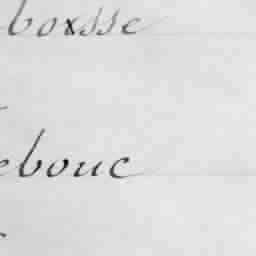 boxsse
ebouc